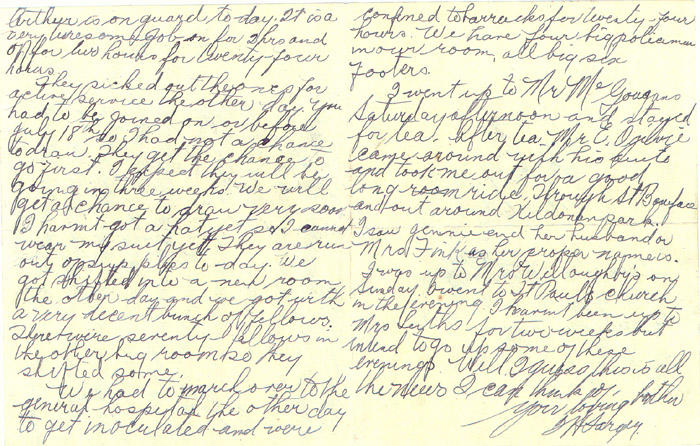 Arthur is on guard to day. It is a
very wiresome job, on for 2 hrs and
off for two hours for twenty four
hours.
They picked out the ones for
active service the other day. You
had to be joined on or before
July 18th so I had not a chance
to draw. They get the chance to
go first. I expect they will be
going in three weeks. We will
get a chance to draw very soon
I harnt got a hat yet so I cannot
wear my suit yet. They are run
out of supplies to day. We
got shifted into a new room
the other day and we got with
a very decent bunch of fellows.
There were seventy fellows in
the other big room so they
shifted some.
We had to march over to the
general hospital the other day
to get inoculated and were
confined to barracks for twenty-four
hours. We have four big policeman
in our room, all big six
footers.
I went up to Mr McGowans
Saturday afternoon and stayed
for tea. After tea Mr E. Ogilvie
came around with his
and took me out for a good
long room ride, through St Boniface
and out around Kildonan park.
I saw gennie and her husband or
Mrs Fink as her proper name is.
I was up to Mrs Willoughby's on
Sunday. I went to St Pauls church
in the evening. I haven't been up to
Mrs for two weeks but
intend to go up some of these
evenings. Well I guess this is all
the news I can think of,
Your loving brother